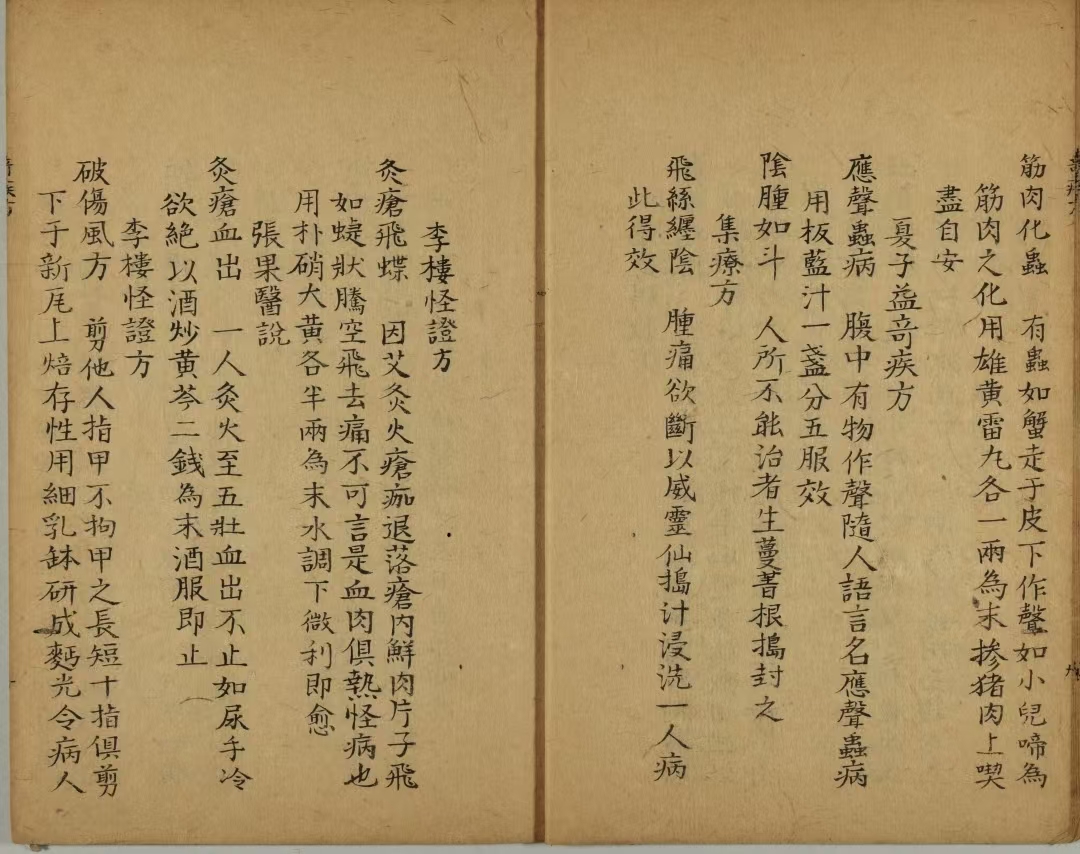 筋肉化蟲　有蟲如蟹走于皮下作聲如小兒啼為
筋肉之化用雄黄雷九各一兩為末掺猪肉上喫
盡自安
夏子益竒疾方
應聲蟲病　腹中有物作聲隨人語言名應聲蟲病
用板藍汁一盞分五服效
陰腫如斗　人所不能治者生蔓菁根搗封之
集療方
飛絲纏陰　腫痛欲斷以威靈仙搗汁浸洗一人病
此得效
李樓怪證方
灸瘡飛蝶　因艾灸火瘡痂退落瘡内鮮肉片子飛
如蜨狀騰空飛去痛不可言是血肉俱熱怪病也
用朴硝大黄各半兩為末水調下微利即愈
張果醫說
灸瘡血出　一人灸火至五壯血出不止如尿手冷
欲絶以酒炒黄芩二銭為末酒服即止
李樓怪證方
破傷風方　剪他人指甲不拘甲之長短十指俱剪
下于新瓦上焙存性用細乳鉢研成麪光令病人